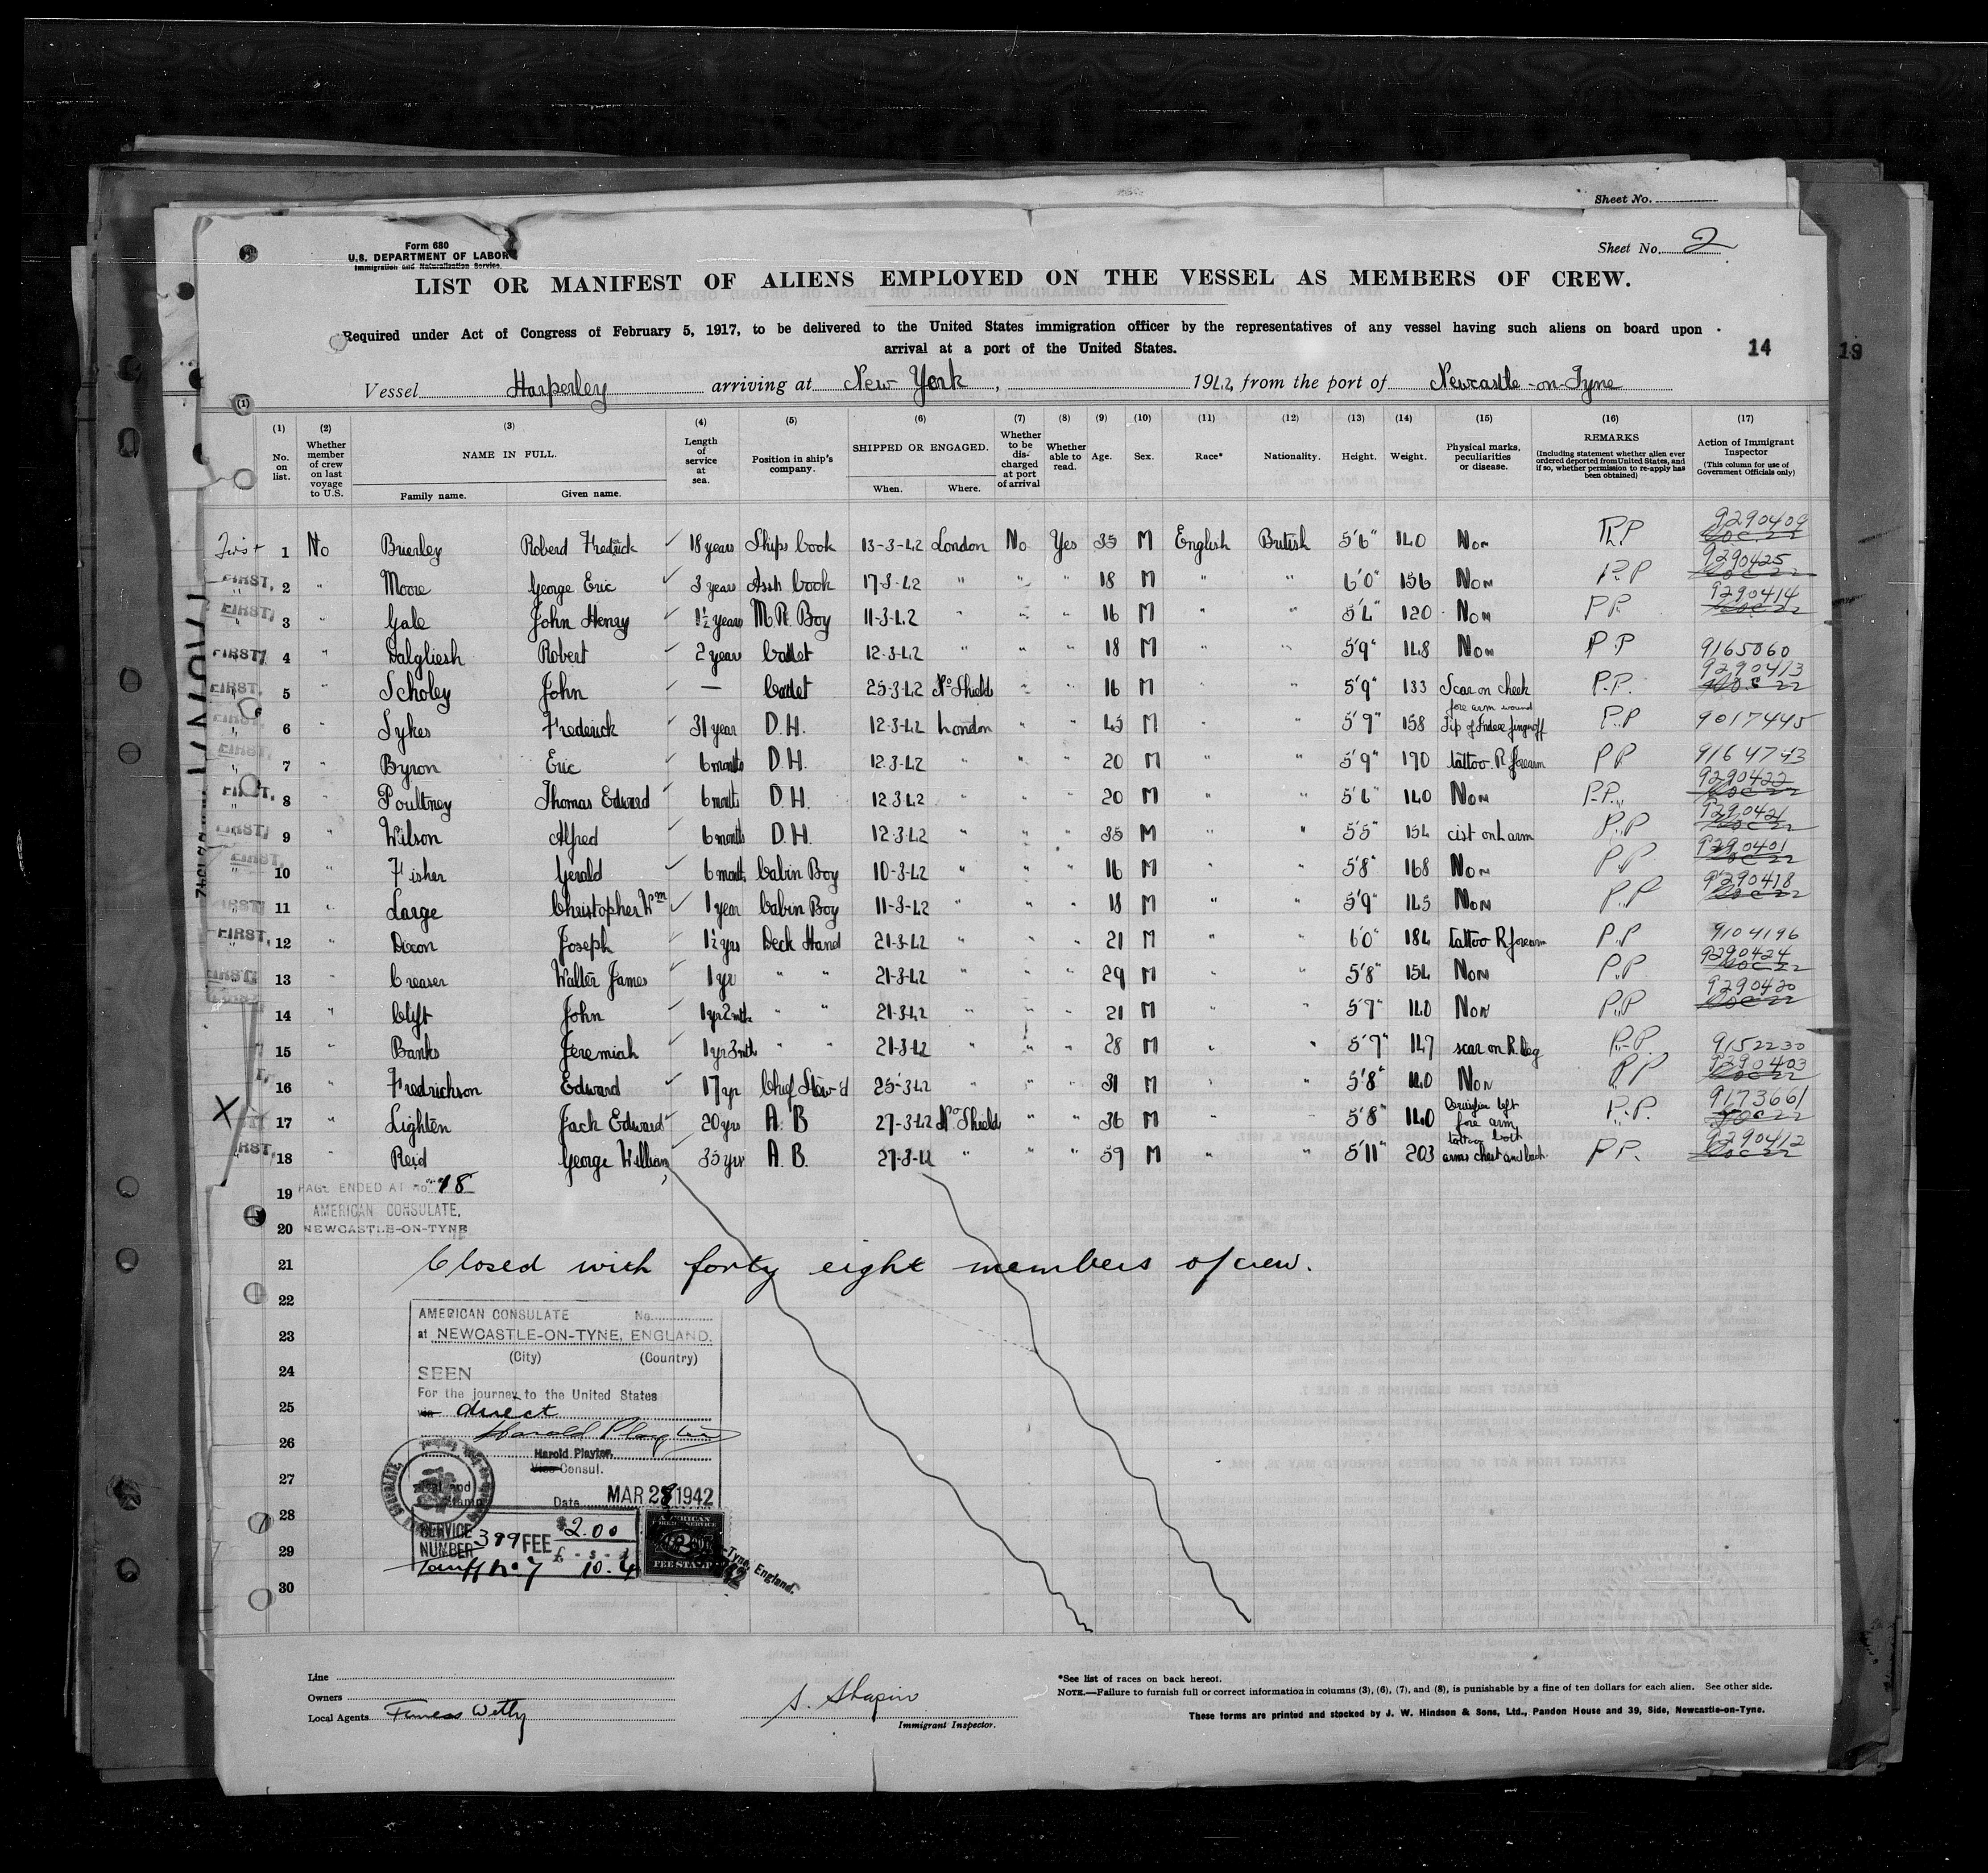 Sheet No.
Form 680
U.S. DEPARTMENT OF LABOR
Immigration and Naturalization Service.
Sheet No. 2
LIST OR MANIFEST OF ALIENS EMPLOYED ON THE VESSEL AS MEMBERS OF CREW.
Required under Act of Congress of February 5, 1917, to be delivered to the United States immigration officer by the representatives of any vessel having such aliens on board upon
arrival at a port of the United States.
14
19
Vessel Harperley arriving at New York, 1942, from the port of Newcastle-on-Tyne
(1) (2) (3) (4) (5) (6) (7) (8) (9) (10) (11) (12) (13) (14) (15) (16) (17)
No. on list. Whether member of crew on last voyage to U.S. NAME IN FULL. Family name. Given name. Length of service at sea. Position in ship's company. SHIPPED OR ENGAGED. When. Where. Whether to be discharged at port of arrival Whether able to read. Age. Sex. Race* Nationality. Height. Weight. Physical marks, peculiarities or disease. REMARKS (Including statement whether alien ever ordered deported from United States, and if so, whether permission to re-apply has been obtained) Action of Immigrant Inspector (This column for use of Government Officials only)
First 1 No Brierley Roberd Fredrick 18 years Ships Cook 13-3-42 London No Yes 35 M English British 5'6" 140 Non P.P 9290409
FIRST, 2 " Moore George Eric 3 years Asst Cook 17-3-42 " " " 18 M " " 6'0" 156 Non P.P 9290425
FIRST, 3 " Gale John Henry 1½ years M.R. Boy 11-3-42 " " " 16 M " " 5'4" 120 Non P.P. 9290414
FIRST, 4 " Dalgliesh Robert 2 year Cadet 12-3-42 " " " 18 M " " 5'9" 148 Non P.P 9165060
FIRST, 5 " Scholey John — Cadet 25-3-42 No Shields " " 16 M " " 5'9" 133 Scar on cheek P.P. 9290413
FIRST, 6 " Sykes Frederick 31 year D.H. 12-3-42 London " " 45 M " " 5'9" 158 fore arm wound Tip of Index finger off P.P 9017445
FIRST, 7 " Byron Eric 6 months D.H. 12-3-42 " " " 20 M " " 5'9" 170 tattoo R forearm P.P 9164743
FIRST, 8 " Poultney Thomas Edward 6 months D.H. 12-3-42 " " " 20 M " " 5'4" 140 Non P.P. 9290422
FIRST, 9 " Wilson Alfred 6 months D.H. 12-3-42 " " " 35 M " " 5'5" 154 cist on L arm P.P 9290421
FIRST, 10 " Fisher Gerald 6 month Cabin Boy 10-3-42 " " " 16 M " " 5'8" 168 Non P.P 9290401
FIRST, 11 " Large Christopher Wm 1 year Cabin Boy 11-3-42 " " " 18 M " " 5'9" 145 Non P.P 9290418
FIRST, 12 " Dixon Joseph 1½ yrs Deck Hand 21-3-42 " " " 21 M " " 6'0" 184 tattoo R forearm P.P 9104196
FIRST, 13 " Creaser Walter James 1 yr " " 21-3-42 " " " 29 M " " 5'8" 154 Non P.P 9290424
14 " Clift John 1 yr 2 mth " " 21-3-42 " " " 21 M " " 5'7" 140 Non P.P 9290420
15 " Banks Jeremiah 1 yr 3 mth " " 21-3-42 " " " 28 M " " 5'7" 147 scar on R. leg P.P. 9152230
16 " Fredrickson Edward 17 yr Chief Stew'd 25-3-42 " " " 31 M " " 5'8" 140 Non P.P 9290403
X 17 " Lighten Jack Edward 20 yrs A.B 27-3-42 No Shields " " 36 M " " 5'8" 140 left fore arm P.P. 9173661
RST, 18 " Reid George William 35 yrs A.B. 27-3-42 " " " 59 M " " 5'11" 203 tattoo both arms chest and back P.P. 9290412
19 PAGE ENDED AT No 18
20 AMERICAN CONSULATE,
NEWCASTLE-ON-TYNE
21 Closed with forty eight members of crew.
22
AMERICAN CONSULATE No.
23 at NEWCASTLE-ON-TYNE, ENGLAND.
(City) (Country)
24 SEEN
For the journey to the United States
25 via direct
26 Harold Playter
Harold Playter.
27 Vice Consul.
Date MAR 28 1942
28 SERVICE NUMBER 399 FEE $2.00
29 Tariff No 7 £ - s - d 10.4
AMERICAN FOREIGN SERVICE FEE STAMP
-Tyne, England.
30
Line
Owners
Local Agents Furness Withy
S. Shapiro
Immigrant Inspector.
*See list of races on back hereof.
NOTE.—Failure to furnish full or correct information in columns (3), (6), (7), and (8), is punishable by a fine of ten dollars for each alien. See other side.
These forms are printed and stocked by J. W. Hindson & Sons, Ltd., Pandon House and 39, Side, Newcastle-on-Tyne.